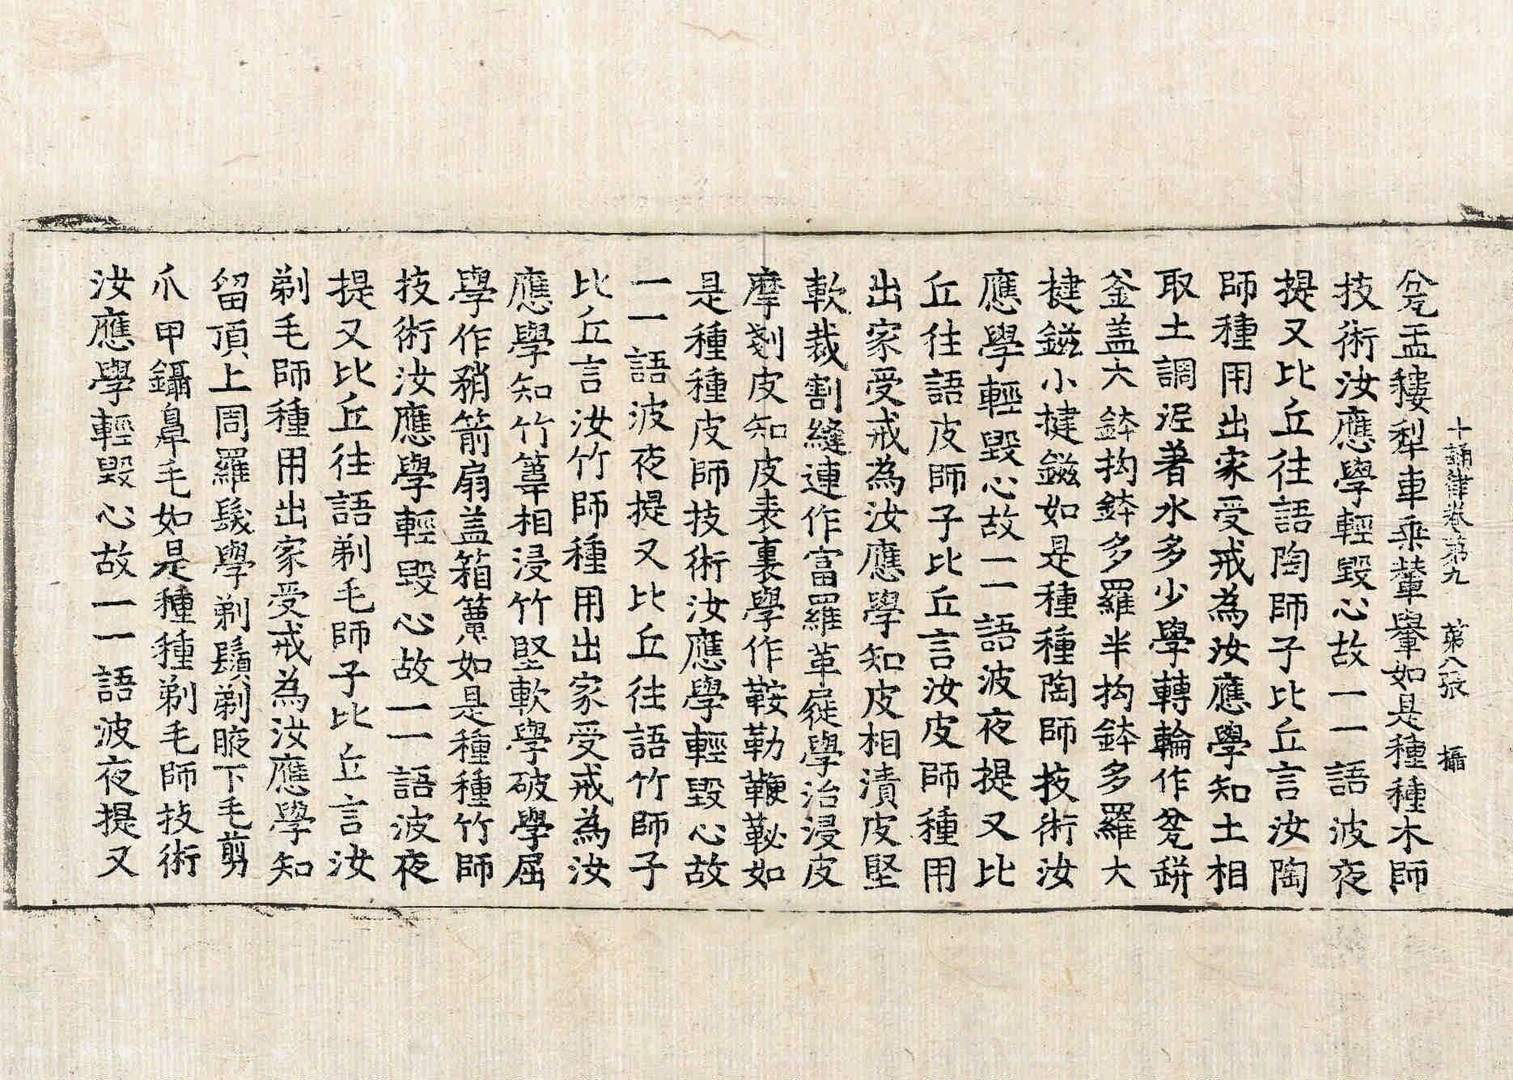 十誦律卷第九　第八張　攝
瓮盂耬犁車乘輦轝如是種種木師
技術汝應學輕毀心故一一語波夜
提又比丘往語陶師子比丘言汝陶
師種用出家受戒為汝應學知土相
取土調泥著水多少學轉輪作瓮瓶
釜盖大鉢拘鉢多羅半拘鉢多羅大
揵鎡小揵鎡如是種種陶師技術汝
應學輕毀心故一一語波夜提又比
丘往語皮師子比丘言汝皮師種用
出家受戒為汝應學知皮相漬皮堅
軟裁割縫連作富羅革屣學治浸皮
摩剗皮知皮表裏學作鞍勒鞭鞁如
是種種皮師技術汝應學輕毀心故
一一語波夜提又比丘往語竹師子
比丘言汝竹師種用出家受戒為汝
應學知竹葦相浸竹堅軟學破學屈
學作矟箭扇盖箱簟如是種種竹師
技術汝應學輕毀心故一一語波夜
提又比丘往語剃毛師子比丘言汝
剃毛師種用出家受戒為汝應學知
留頂上周羅髮學剃鬚剃腋下毛剪
爪甲鑷鼻毛如是種種剃毛師技術
汝應學輕毀心故一一語波夜提又